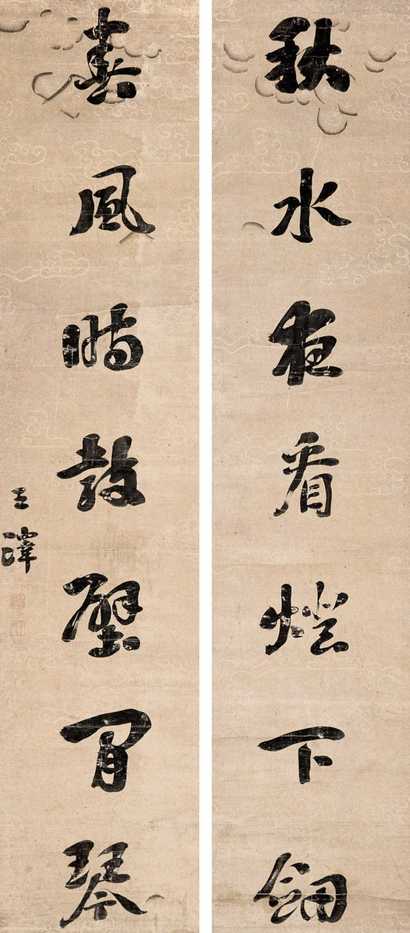 秋水夜看燈下劍
春風時鼓壁間琴
王